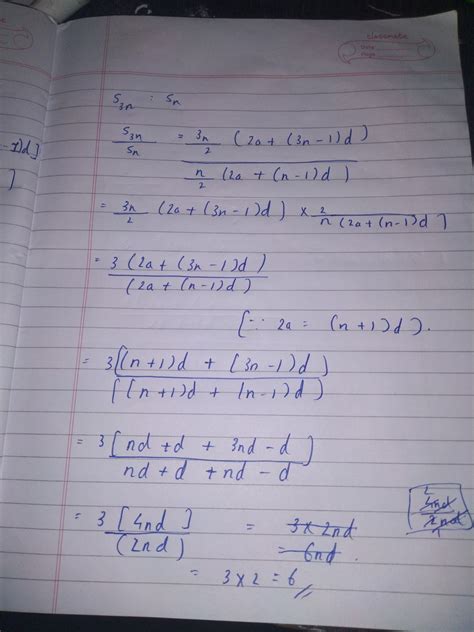 classmate
Date
Page
S3n : Sn
S3n/Sn = 3n/2 (2a + (3n-1)d) / n/2 (2a + (n-1)d)
= 3n/2 (2a + (3n-1)d) × 2/n(2a + (n-1)d]
= 3(2a + (3n-1)d) / (2a + (n-1)d)
[∵ 2a = (n+1)d).
= 3[(n+1)d + (3n-1)d) / [(n+1)d + (n-1)d)
= 3[nd + d + 3nd - d] / nd + d + nd - d
= 3[4nd] / (2nd) = 3 × 2nd
= 6nd.
= 3 × 2 = 6
2
4nd
2nd
1
-1)d]
]